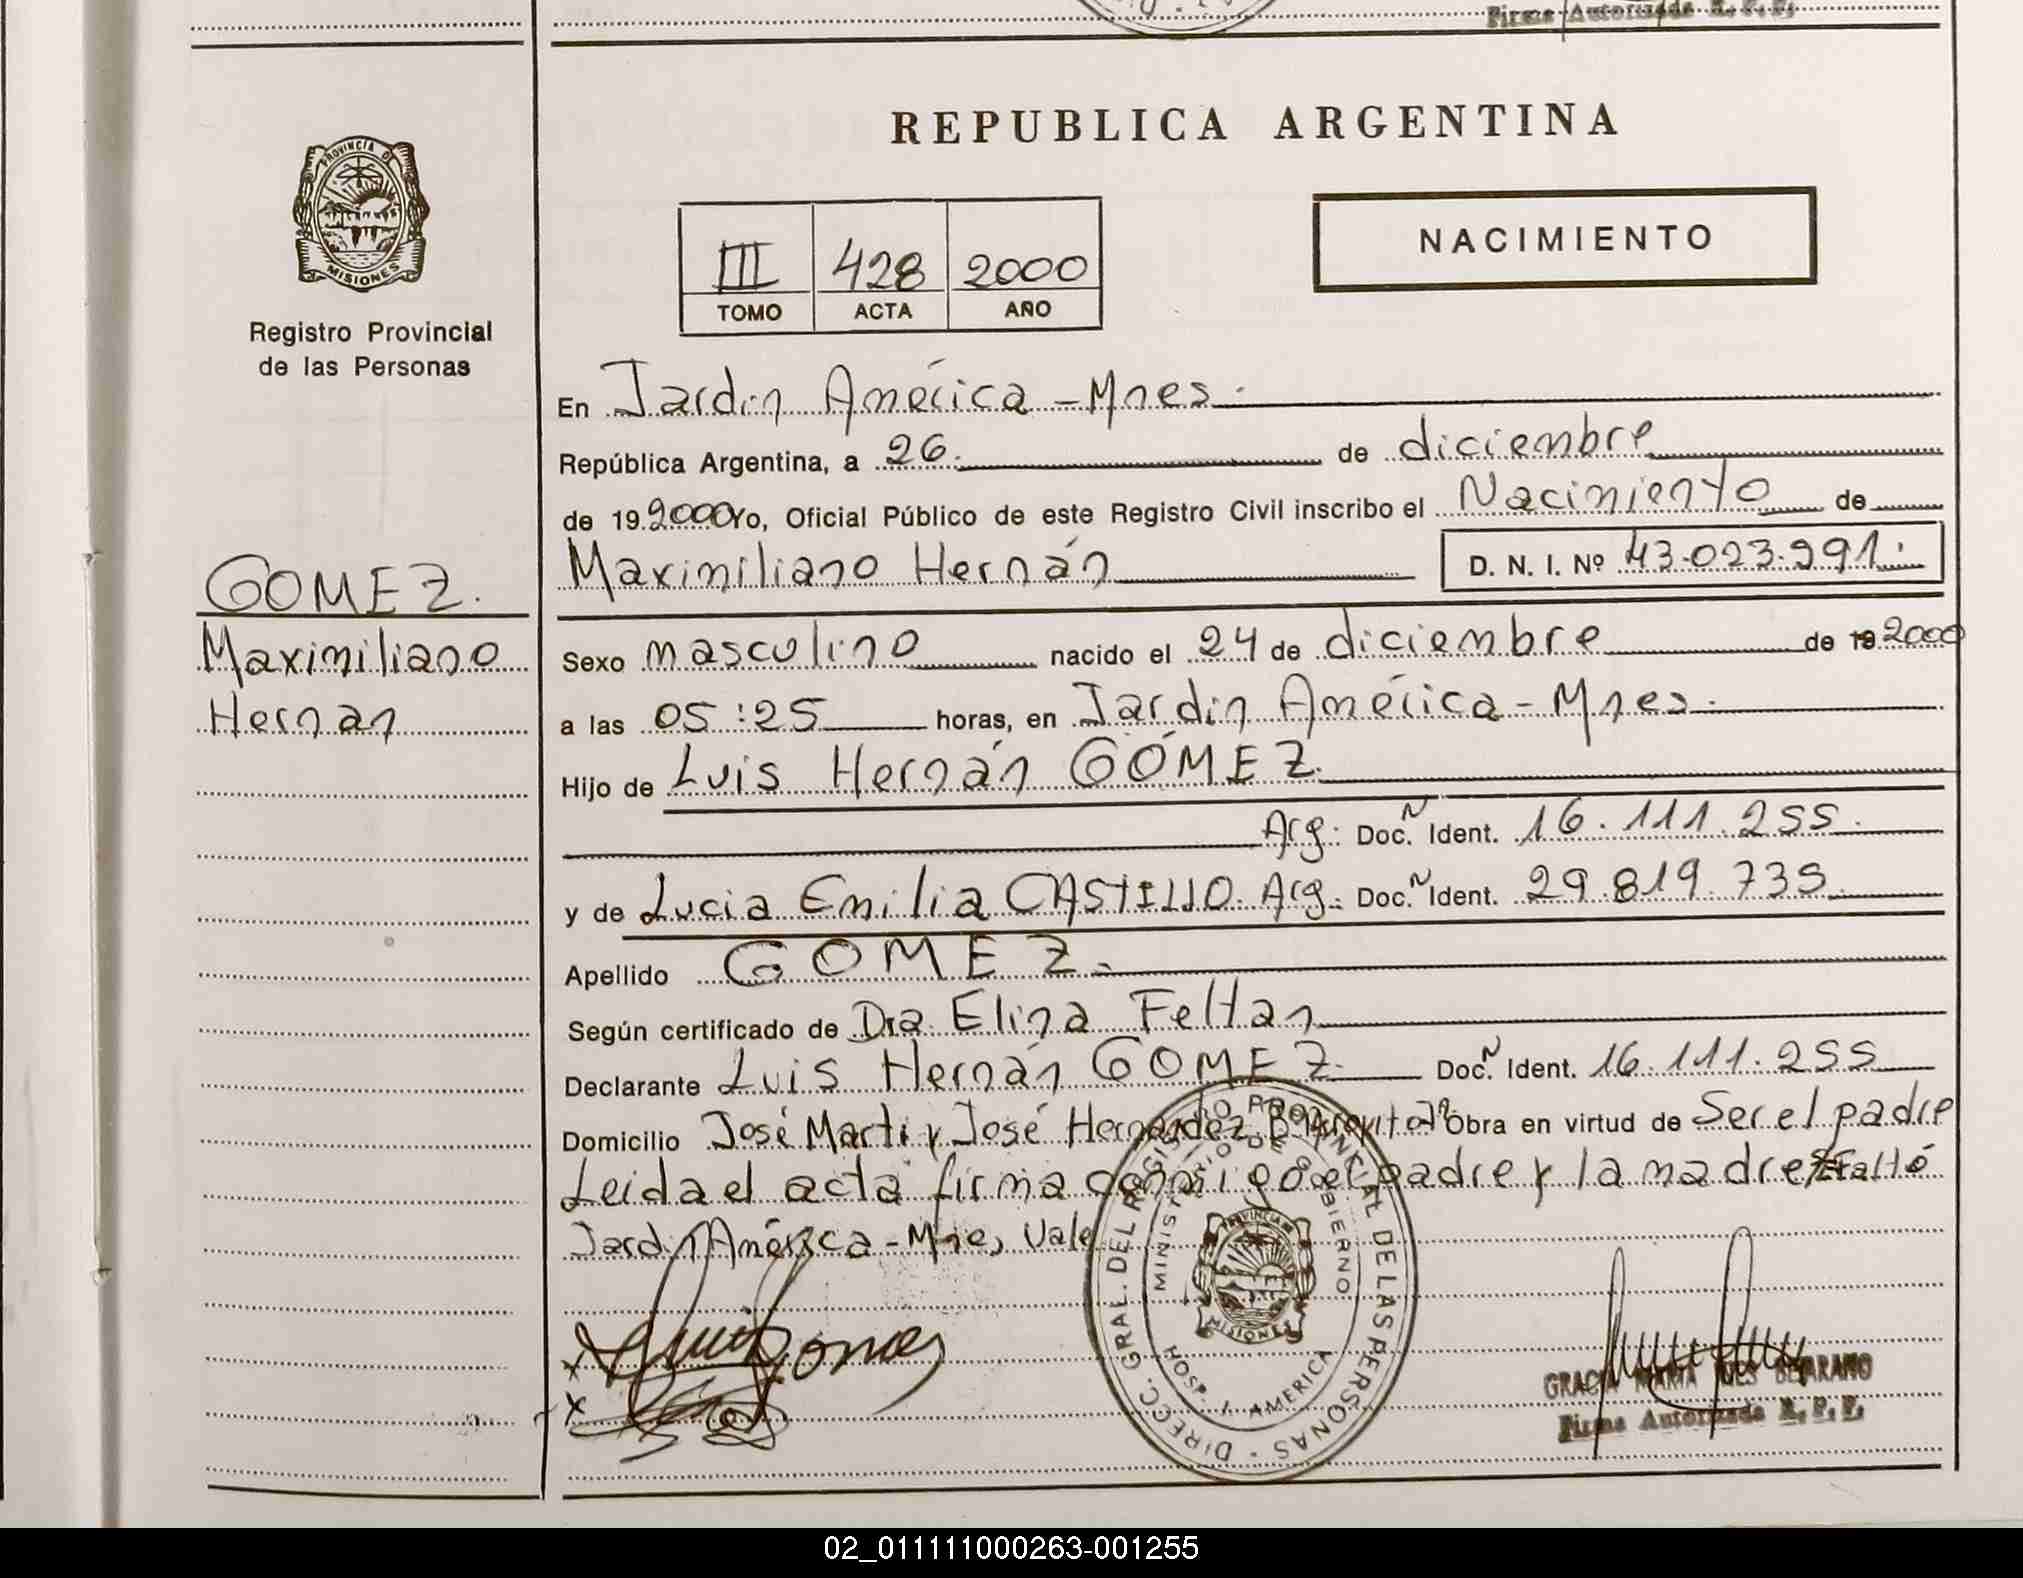 Firma Autorizada R. P. P.
REPUBLICA ARGENTINA
PROVINCIA DE
MISIONES
Registro Provincial
de las Personas
III 428 2000
TOMO ACTA AÑO
NACIMIENTO
En Jardín América - Mnes.
República Argentina, a 26. de diciembre
de 19 2000 Yo, Oficial Público de este Registro Civil inscribo el Nacimiento de
Maximiliano Hernán D. N. I. Nº 43.023.991.
GOMEZ.
Maximiliano
Hernan
Sexo masculino nacido el 24 de diciembre de 19 2000
a las 05:25 horas, en Jardín América - Mnes.
Hijo de Luis Hernán GÓMEZ.
Arg. Doc. N Ident. 16.111.255.
y de Lucia Emilia CASTILLO. Arg. Doc. N Ident. 29.819.735.
Apellido GOMEZ.
Según certificado de Dra. Elina Feltan
Declarante Luis Hernán GOMEZ. Doc. N Ident. 16.111.255
Domicilio José Marti y José Hernández Obra en virtud de Ser el padre
Leida el acta firma conmigo el padre y la madre Faltó
Jardín América - Mnes, Vale
DIRECC. GRAL. DEL REGISTRO PROVINCIAL DE LAS PERSONAS
MINISTERIO DE GOBIERNO
HOSP. J. AMERICA
PROVINCIA DE
MISIONES
x Luis Gomez
x
GRACIA MARIA INES BEJARANO
Firma Autorizada R. P. P.
02_011111000263-001255